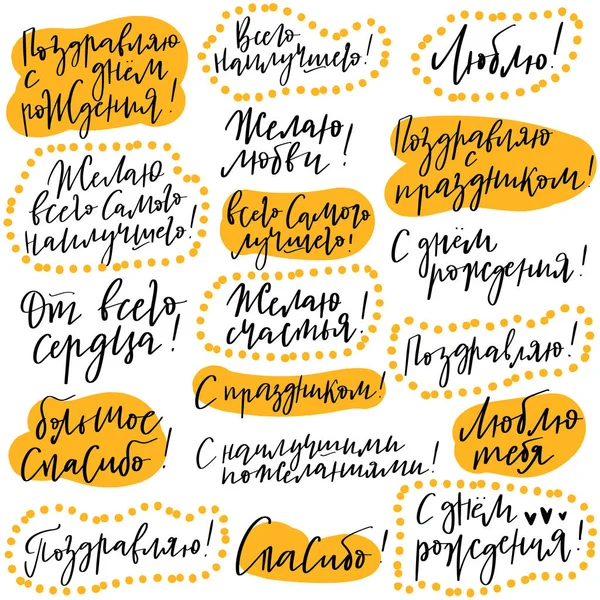 Поздравляю
с днём
рождения!
Всего
наилучшего!
Люблю!
Желаю
любви!
Поздравляю
с
праздником!
Желаю
всего самого
наилучшего!
всего самого
лучшего!
С днём
рождения!
От всего
сердца!
Желаю
счастья!
Поздравляю!
С праздником!
большое
спасибо!
С наилучшими
пожеланиями!
Люблю
тебя
Поздравляю!
Спасибо!
С днём
рождения!